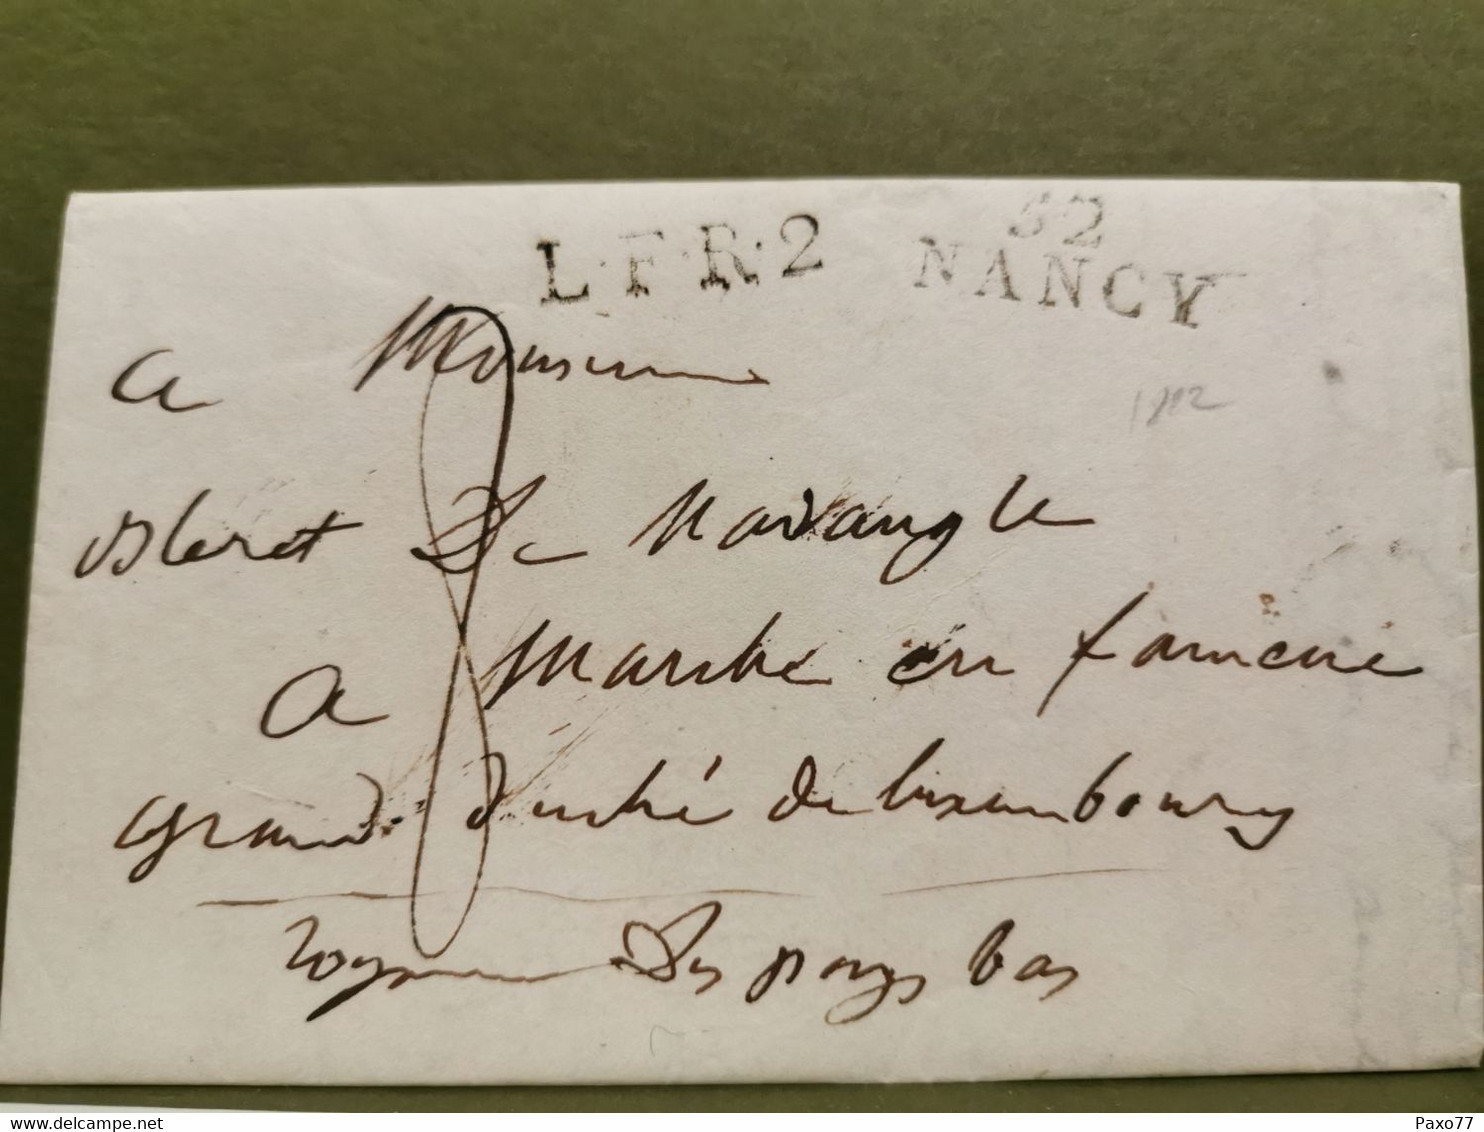 L.F.R.2
52
NANCY
a Monsieur
1802
De Navangle
a Marche en famenne
grand duché de luxembourg
royaume des pays bas
delcampe.net
Paxo77